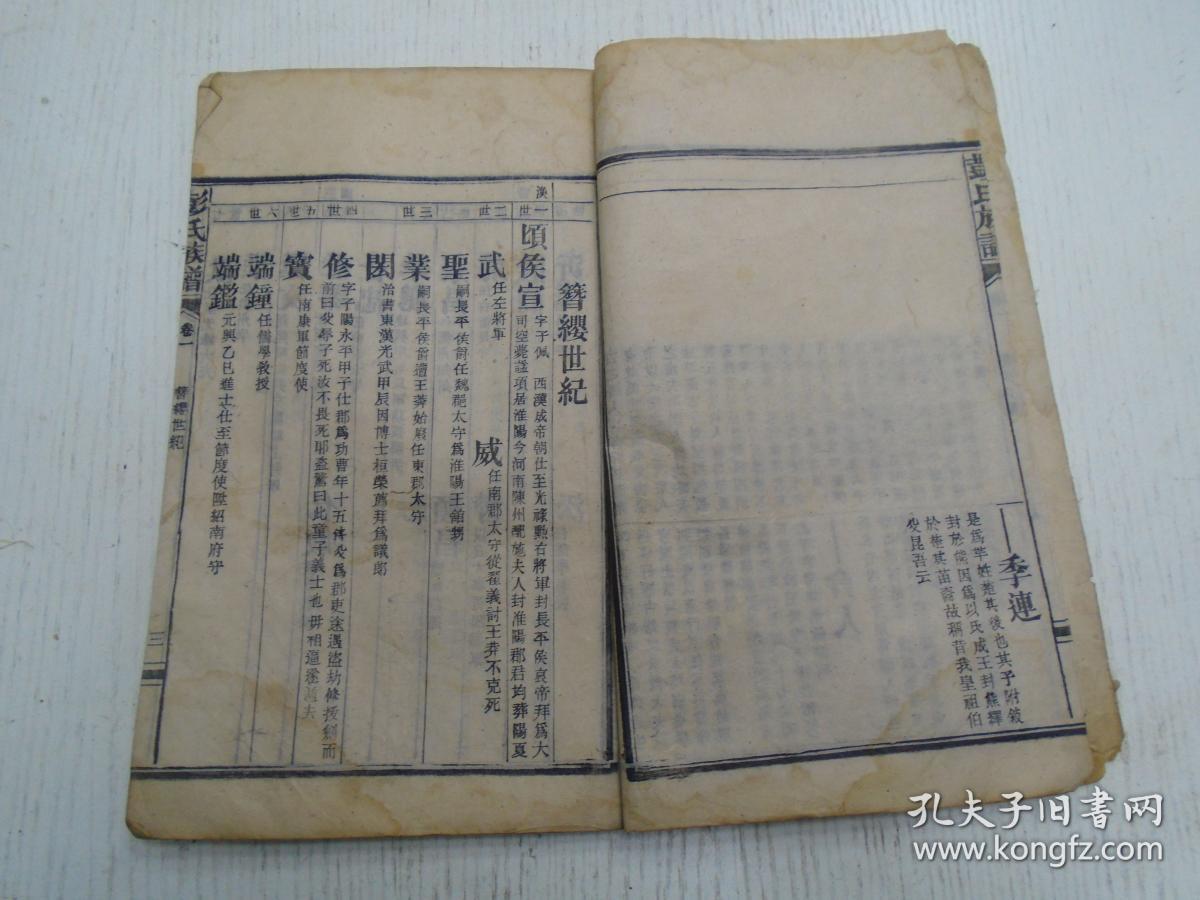 彭氏族譜
季連
是為芈姓楚其後也其予附敘
封於熊因為以氏成王封熊繹
於楚其苗裔故稱昔我皇祖伯
父昆吾云
簪纓世紀
漢
一世
頃侯宣
字子佩 西漢成帝朝仕至光祿勳右將軍封長平侯哀帝拜為大
司空薨諡項居淮陽今河南陳州酈施夫人封淮陽郡君均葬陽夏
二世
武
任左將軍
威
任南郡太守從翟義討王莽不克死
聖
嗣長平侯爵任魏郡太守為淮陽王館甥
三世
業
嗣長平侯爵遭王莽始廢任東郡太守
閎
治書東漢光武甲辰因博士桓榮薦拜為議郎
四世
修
字子陽永平甲子仕郡為功曹年十五侍父為郡吏途遇盜劫修拔劍而
前曰父辱子死汝不畏死耶盜驚曰此童子義士也毋相逼遂去
五世
寶
任南康軍節度使
六世
端鐘
任儒學教授
端鑑
元興乙巳進士仕至節度使陞紹南府守
彭氏族譜
卷一
簪纓世紀
三
孔夫子旧书网
www.kongfz.com